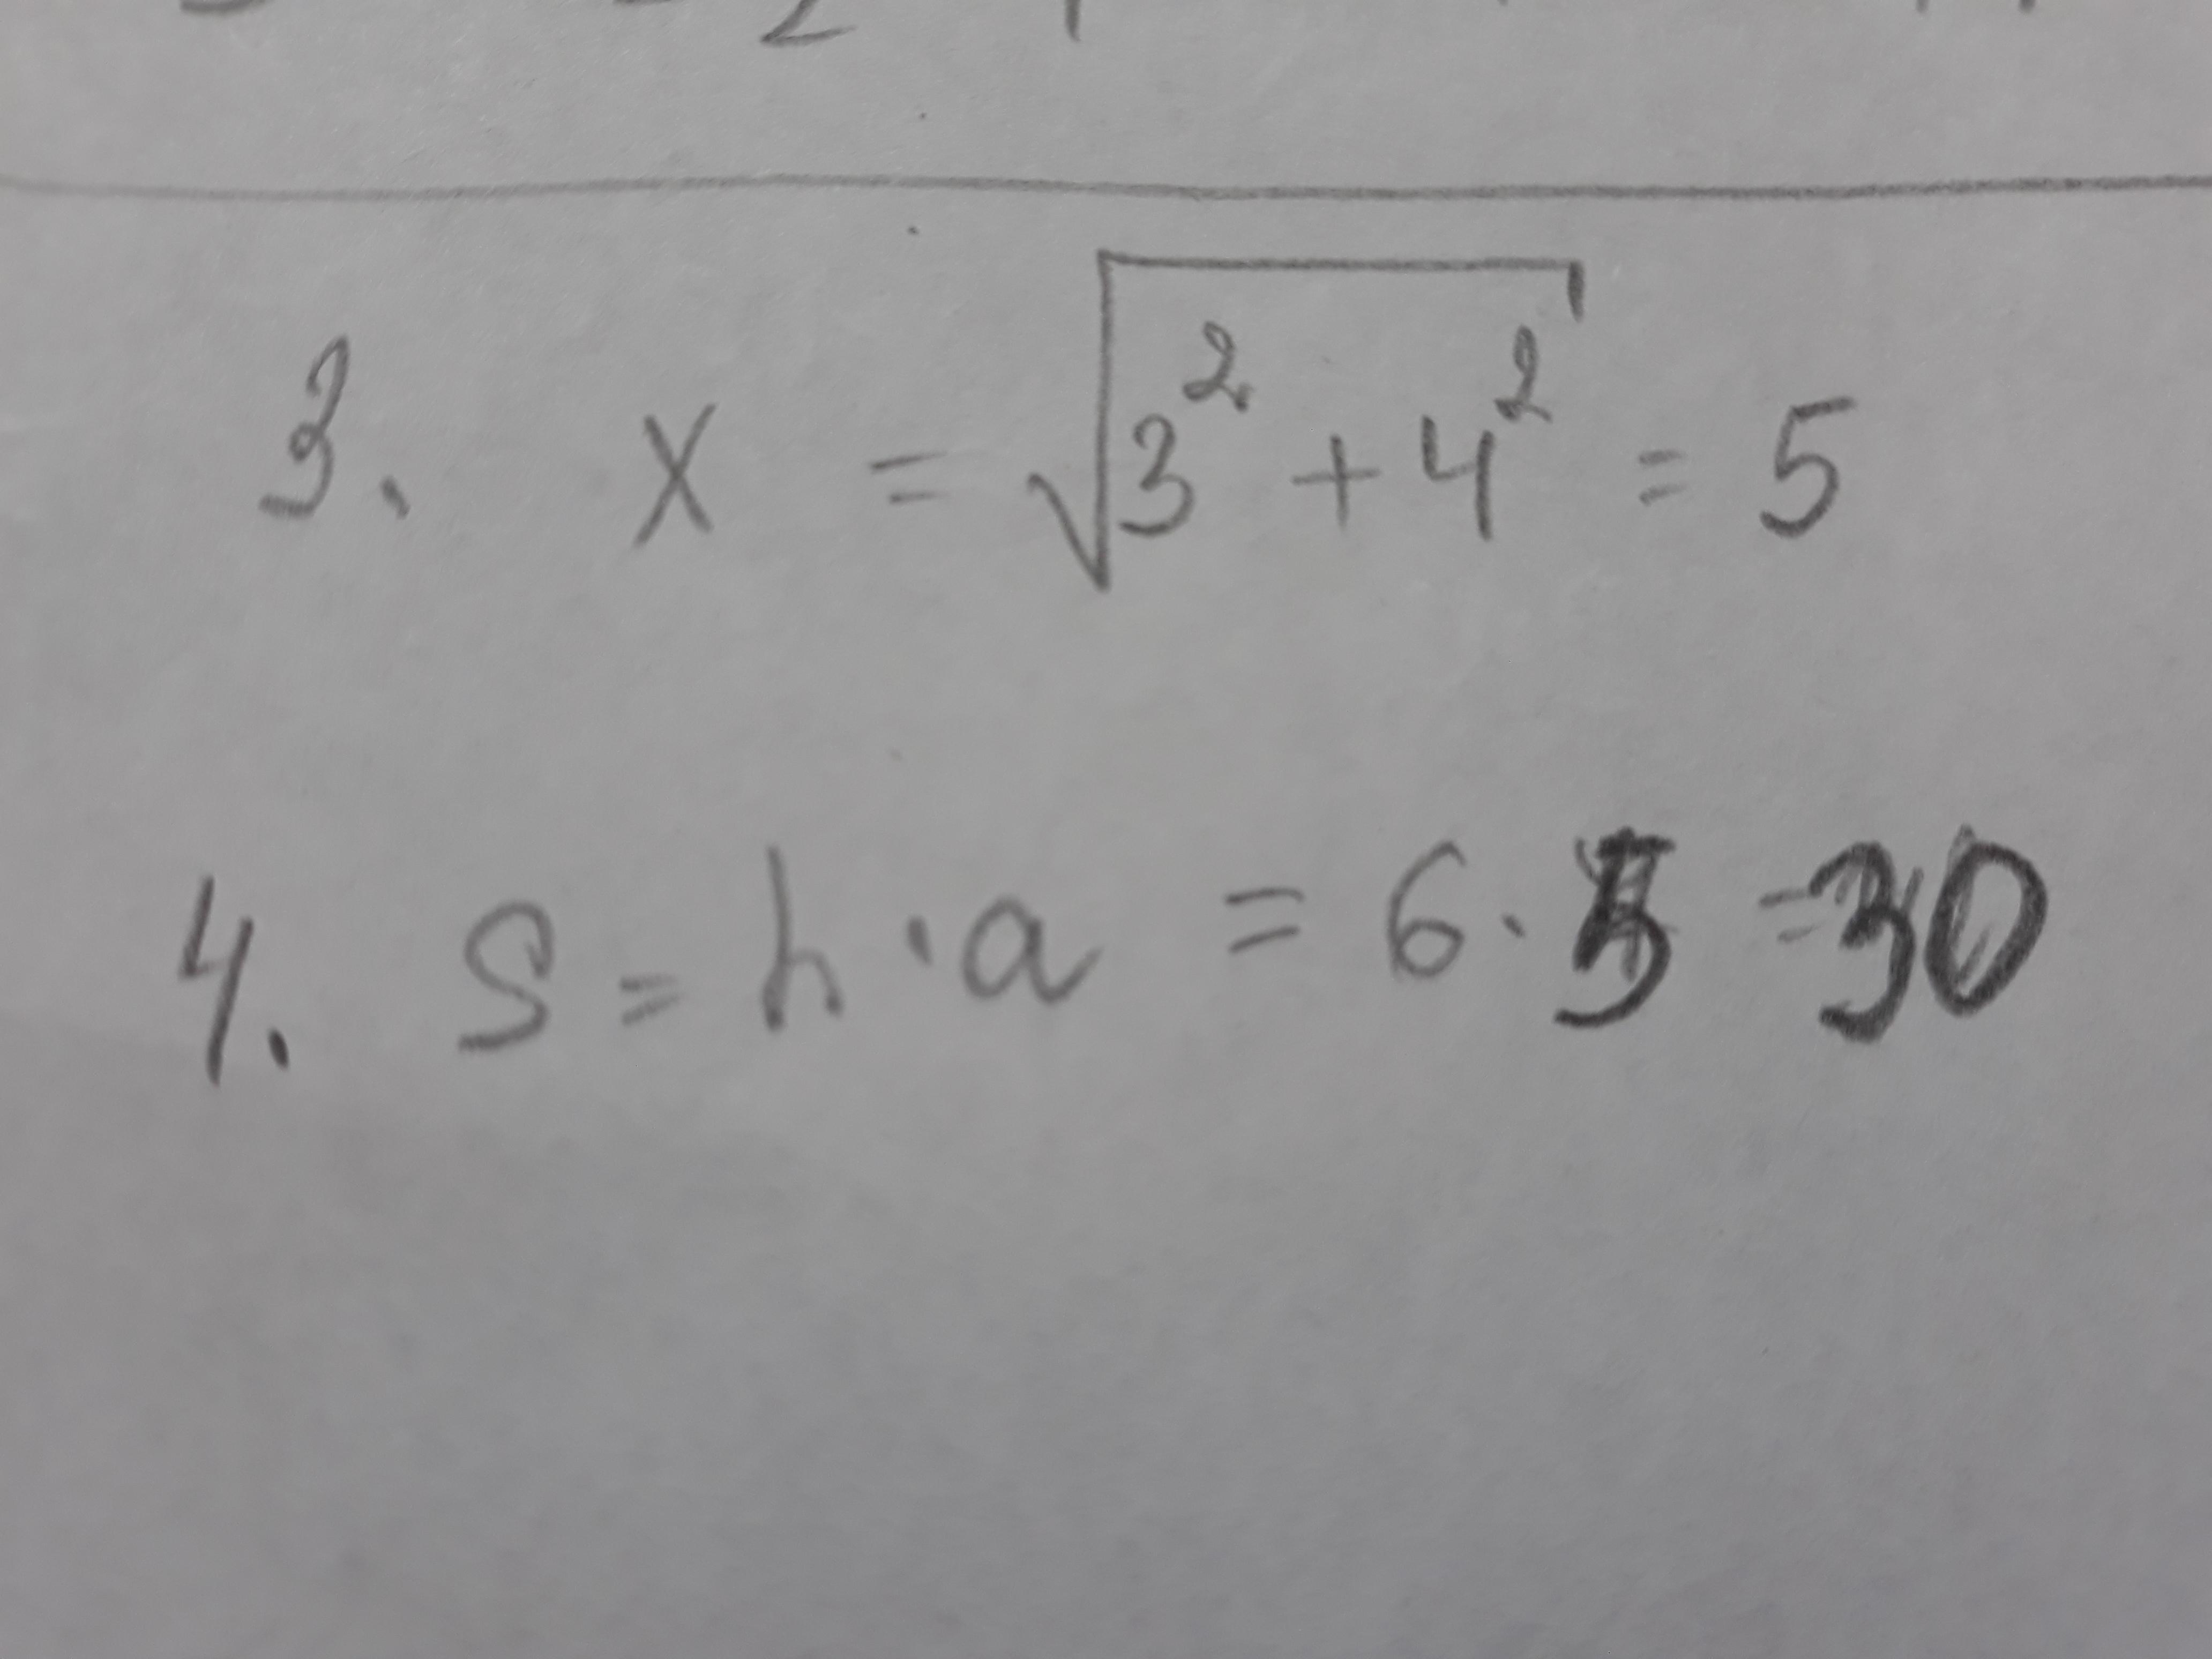 3. x = √3² + 4² = 5
4. S = h · a = 6 · 5 = 30